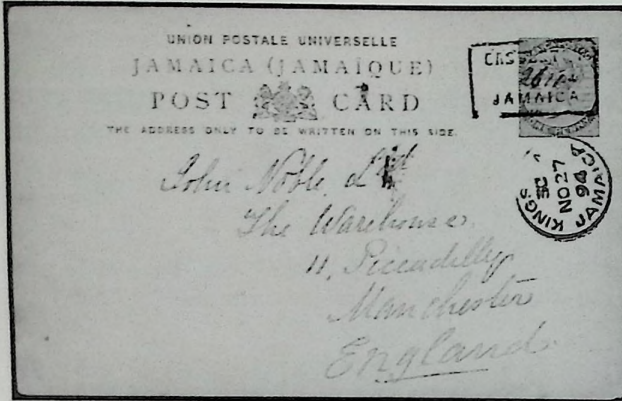 UNION POSTALE UNIVERSELLE
JAMAICA (JAMAÏQUE)
POST CARD
THE ADDRESS ONLY TO BE WRITTEN ON THIS SIDE.
JAMAICA
KINGS
NO 27
94
JAMAICA
John Noble Ltd
The Warehouses
11, Piccadilly
Manchester
England